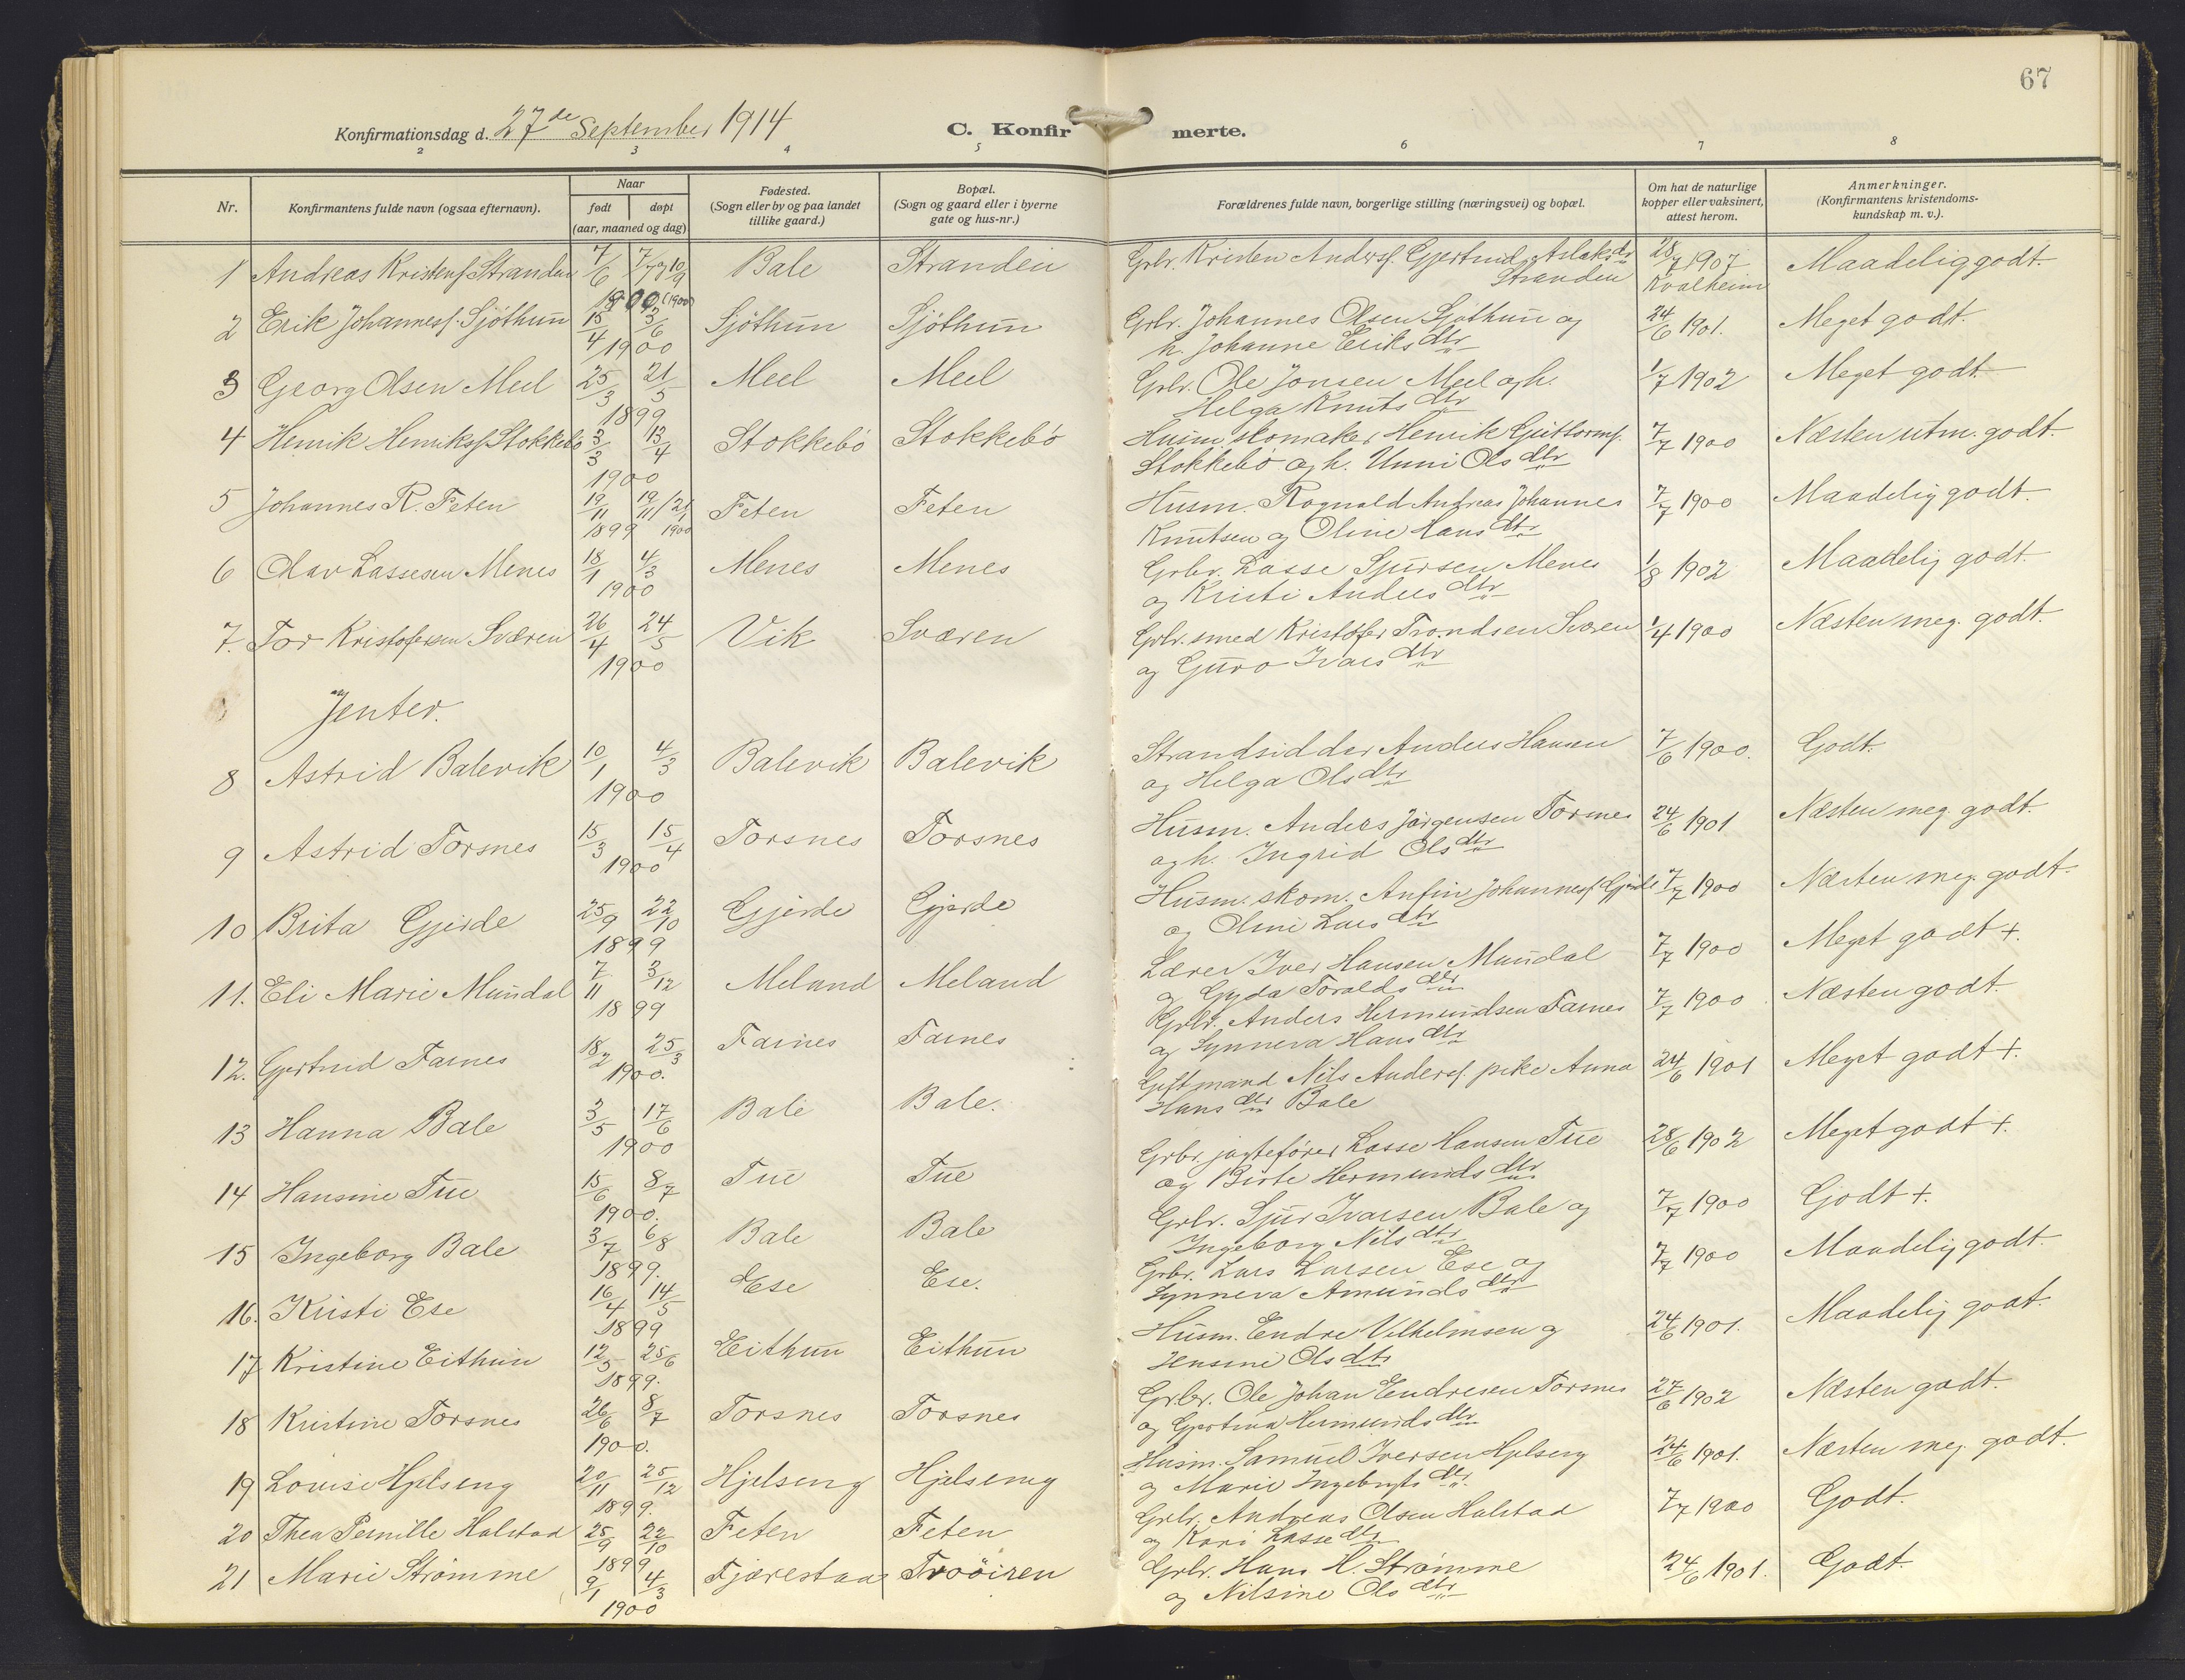 67
Konfirmationsdag d. 27de September 1914 C. Konfirmerte.
2 3 4 5 6 7 8
Nr. Konfirmantens fulde navn (ogsaa efternavn). Naar født døpt (aar, maaned og dag) Fødested. (Sogn eller by og paa landet tillike gaard.) Bopæl. (Sogn og gaard eller i byerne gate og hus-nr.) Forældrenes fulde navn, borgerlige stilling (næringsvei) og bopæl. Om hat de naturlige kopper eller vaksinert, attest herom. Anmerkninger. (Konfirmantens kristendomskundskap m. v.).
1 Andreas Kristens. Stranden 7/6 1900 Bale Stranden Grbr. Kristen Anders. Gjertrud Aslaksdtr Stranden 28/7 1907 Kvalheim Maadelig godt.
2 Erik Johanness. Sjöthun 15/4 3/6 1900 Sjöthun Sjöthun Grbr. Johannes Olsen Sjöthun og
h. Johanne Eriksdtr 24/6 1901. Meget godt.
3 Georg Olsen Meel 25/3 21/5 1899 Meel Meel Grbr. Ole Jonsen Meel og h.
Helga Knutsdtr 1/7 1902 Meget godt.
4 Henrik Henriks. Stokkebö 3/3 13/4 1900 Stokkebö Stokkebö Husm. skomaker Henrik Guttorms.
Stokkebö og h. Unni Olsdtr 7/7 1900 Næsten utm. godt.
5 Johannes R. Feten 19/11 1899 19/11 / 21/1 1900 Feten Feten Husm. Ragnald Andreas Johannes
Knutsen og Oline Hansdtr 7/7 1900 Maadelig godt.
6 Olav Lassesen Menes 18/1 4/3 1900 Menes Menes Grbr. Lasse Sjursen Menes
og Kristi Andersdtr 1/8 1902 Maadelig godt.
7. Tor Kristofersen Sværen 26/4 24/5 1900 Vik Sværen Grbr. smed Kristofer Trondsen Sværen
og Guro Ivarsdtr 1/4 1900 Næsten meg. godt.
Jenter.
8 Astrid Balevik 10/1 4/3 1900 Balevik Balevik Strandsidder Anders Hansen
og Helga Olsdtr 7/6 1900. Godt.
9 Astrid Torsnes 15/3 15/4 1900 Torsnes Torsnes Husm. Anders Jörgensen Torsnes
og h. Ingrid Olsdtr 24/6 1901 Næsten meg. godt.
10 Brita Gjerde 25/9 22/10 1899 Gjerde Gjerde Husm. skom. Anfin Johanness. Gjerde
og Oline Larsdtr 7/7 1900 Næsten meg. godt.
11. Eli Marie Mundal 7/11 3/12 1899 Meland Meland Lærer Iver Hansen Mundal
og Gyda Toraldsdtr 7/7 1900 Meget godt +.
12. Gjertrud Farnes 18/2 25/3 1900. Farnes Farnes Grbr. Anders Hermundsen Farnes
og Synneva Hansdtr 7/7 1900 Næsten godt.
13 Hanna Bale 3/5 17/6 1900 Bale Bale. Giftmand Nils Anders. pike Anna
Hansdtr Bale 24/6 1901 Meget godt +.
14 Hansine Tue 15/6 8/7 1900. Tue Tue Grbr. jagtefører Lasse Hansen Tue
og Birte Hermundsdtr 28/6 1902 Meget godt +.
15 Ingeborg Bale 3/7 6/8 1899. Bale Bale Grbr. Sjur Ivarsen Bale og
Ingeborg Nilsdtr 7/7 1900 Godt +.
16. Kristi Ese 16/4 14/5 1899 Ese Ese. Grbr. Lars Larsen Ese og
Synneva Amundsdtr 7/7 1900 Maadelig godt.
17 Kristine Eithun 12/5 25/6 1899. Eithun Eithun Husm. Endre Vilhelmsen og
Jensine Olsdtr 24/6 1901. Maadelig godt.
18 Kristine Torsnes 26/6 8/7 1900. Torsnes Torsnes Grbr. Ole Johan Endresen Torsnes
og Gjertina Hermundsdtr 27/6 1902 Næsten godt.
19 Lovise Hjelseng 20/11 25/12 1899. Hjelseng Hjelseng Husm. Samuel Iversen Hjelseng
og Marie Ingebrigtsdtr 24/6 1901. Næsten meg. godt.
20 Thea Pernille Halstad 25/9 22/10 1899 Feten Feten Grbr. Andreas Olsen Halstad
og Kari Lassedtr 7/7 1900 Godt.
21 Marie Strömme 9/1 4/3 1900 Fjærestad Grbr. Hans H. Strömme
og Nilsine Olsdtr 24/6 1901. Godt.